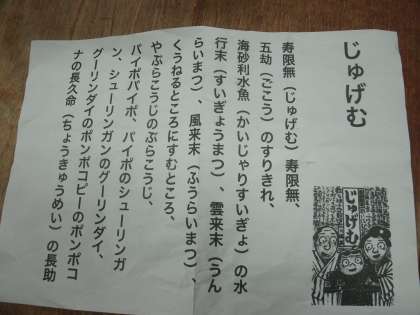 じゅげむ
寿限無（じゅげむ）寿限無、
五劫（ごこう）のすりきれ、
海砂利水魚（かいじゃりすいぎょ）の水
行末（すいぎょうまつ）、雲来末（うん
らいまつ）、風来末（ふうらいまつ）、
くうねるところにすむところ、
やぶらこうじのぶらこうじ、
パイポパイポ、パイポのシューリンガ
ン、シューリンガンのグーリンダイ、
グーリンダイのポンポコピーのポンポコ
ナの長久命（ちょうきゅうめい）の長助
じゅげむ